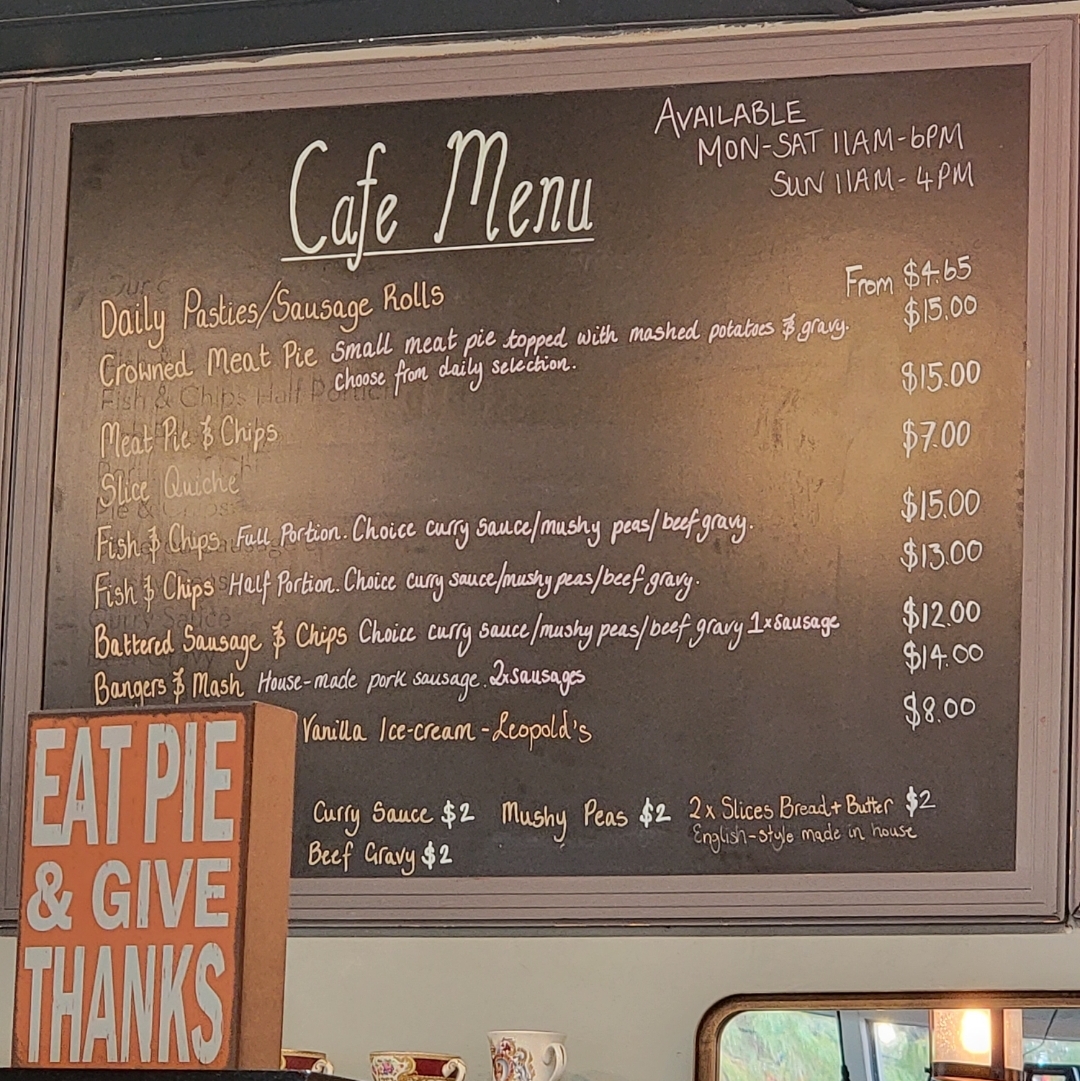 AVAILABLE
MON-SAT 11AM-6PM
SUN 11AM-4PM
Cafe Menu
Daily Pasties/Sausage Rolls From $4.65
Crowned Meat Pie Small meat pie topped with mashed potatoes & gravy. $15.00
choose from daily selection.
Meat Pie & Chips $15.00
Slice Quiche $7.00
Fish & Chips Full Portion. Choice curry sauce/mushy peas/beef gravy. $15.00
Fish & Chips Half Portion. Choice curry sauce/mushy peas/beef gravy. $13.00
Battered Sausage & Chips Choice curry sauce/mushy peas/beef gravy 1xsausage $12.00
Bangers & Mash House-made pork sausage. 2xsausages $14.00
Vanilla Ice-cream - Leopold's $8.00
Curry Sauce $2 Mushy Peas $2 2x Slices Bread + Butter $2
English-style made in house
Beef Gravy $2
EAT PIE
& GIVE
THANKS